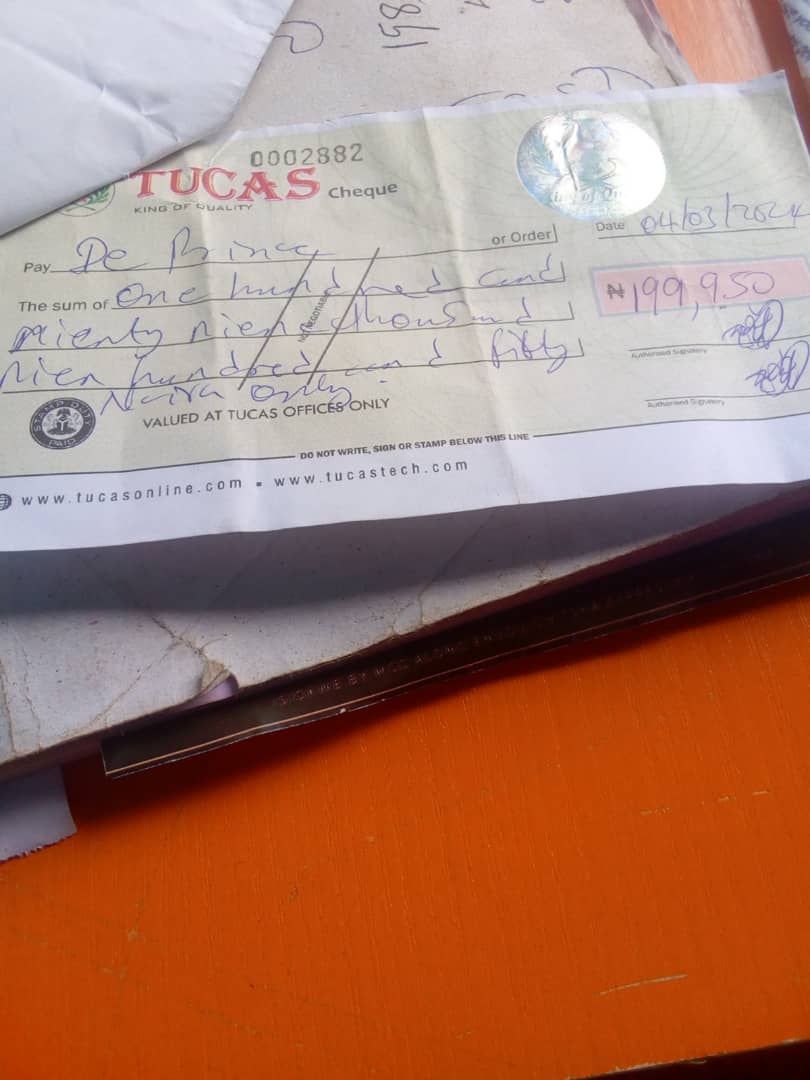 1984
0002882
TUCAS Cheque
KING OF QUALITY
Date 04/03/2024
Pay De Prince or Order
The sum of One hundred and
₦199,950
Nienty nien thousand
NOT NEGOTIABLE
Nien hundred and fifty
Naira Only.
Authorised Signatory
Authorised Signatory
STAMP DUTY PAID
VALUED AT TUCAS OFFICES ONLY
DO NOT WRITE, SIGN OR STAMP BELOW THIS LINE
www.tucasonline.com ▪ www.tucastech.com